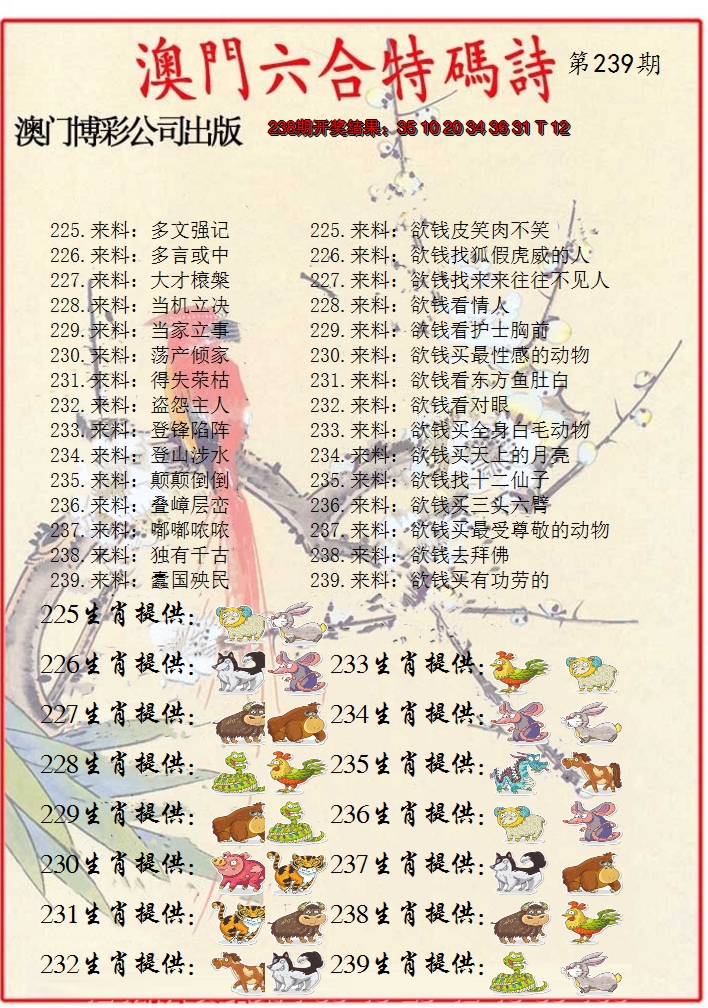 澳門六合特碼詩 第239期
澳门博彩公司出版 238期开奖结果：35 10 20 34 36 31 T 12
225.来料：多文强记 225.来料：欲钱皮笑肉不笑
226.来料：多言或中 226.来料：欲钱找狐假虎威的人
227.来料：大才榱槃 227.来料：欲钱找来来往往不见人
228.来料：当机立决 228.来料：欲钱看情人
229.来料：当家立事 229.来料：欲钱看护士胸前
230.来料：荡产倾家 230.来料：欲钱买最性感的动物
231.来料：得失荣枯 231.来料：欲钱看东方鱼肚白
232.来料：盗怨主人 232.来料：欲钱看对眼
233.来料：登锋陷阵 233.来料：欲钱买全身白毛动物
234.来料：登山涉水 234.来料：欲钱买天上的月亮
235.来料：颠颠倒倒 235.来料：欲钱找十二仙子
236.来料：叠嶂层峦 236.来料：欲钱买三头六臂
237.来料：嘟嘟哝哝 237.来料：欲钱买最受尊敬的动物
238.来料：独有千古 238.来料：欲钱去拜佛
239.来料：蠹国殃民 239.来料：欲钱买有功劳的
225生肖提供：
226生肖提供： 233生肖提供：
227生肖提供： 234生肖提供：
228生肖提供： 235生肖提供：
229生肖提供： 236生肖提供：
230生肖提供： 237生肖提供：
231生肖提供： 238生肖提供：
232生肖提供： 239生肖提供：